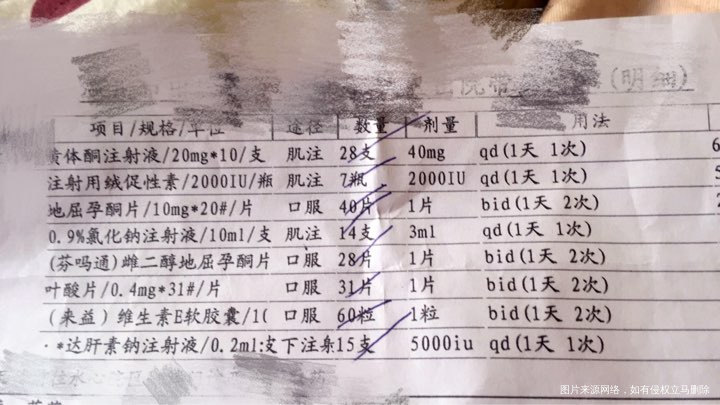 (明细)
项目/规格/单位 途径 数量 剂量 用法
黄体酮注射液/20mg*10/支 肌注 28支 40mg qd(1天 1次)
注射用绒促性素/2000IU/瓶 肌注 7瓶 2000IU qd(1天 1次)
地屈孕酮片/10mg*20#/片 口服 40片 1片 bid(1天 2次)
0.9%氯化钠注射液/10ml/支 肌注 14支 3ml qd(1天 1次)
(芬吗通)雌二醇地屈孕酮片 口服 28片 1片 bid(1天 2次)
叶酸片/0.4mg*31#/片 口服 31片 1片 bid(1天 2次)
(来益)维生素E软胶囊/1( 口服 60粒 1粒 bid(1天 2次)
*达肝素钠注射液/0.2ml:支 下注射 15支 5000iu qd(1天 1次)
图片来源网络，如有侵权立马删除